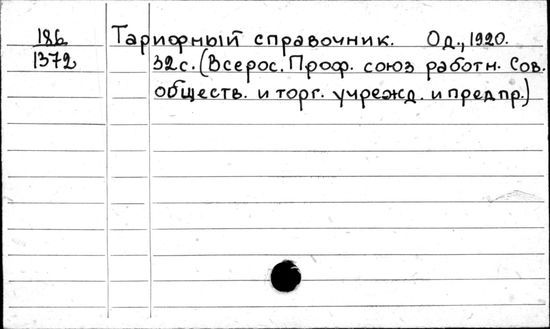 186 Тарифный справочник. Од., 1920.
1372 32 с. (Всерос. Проф. союз работн. Сов.
обществ. и торг. учрежд. и предпр.)